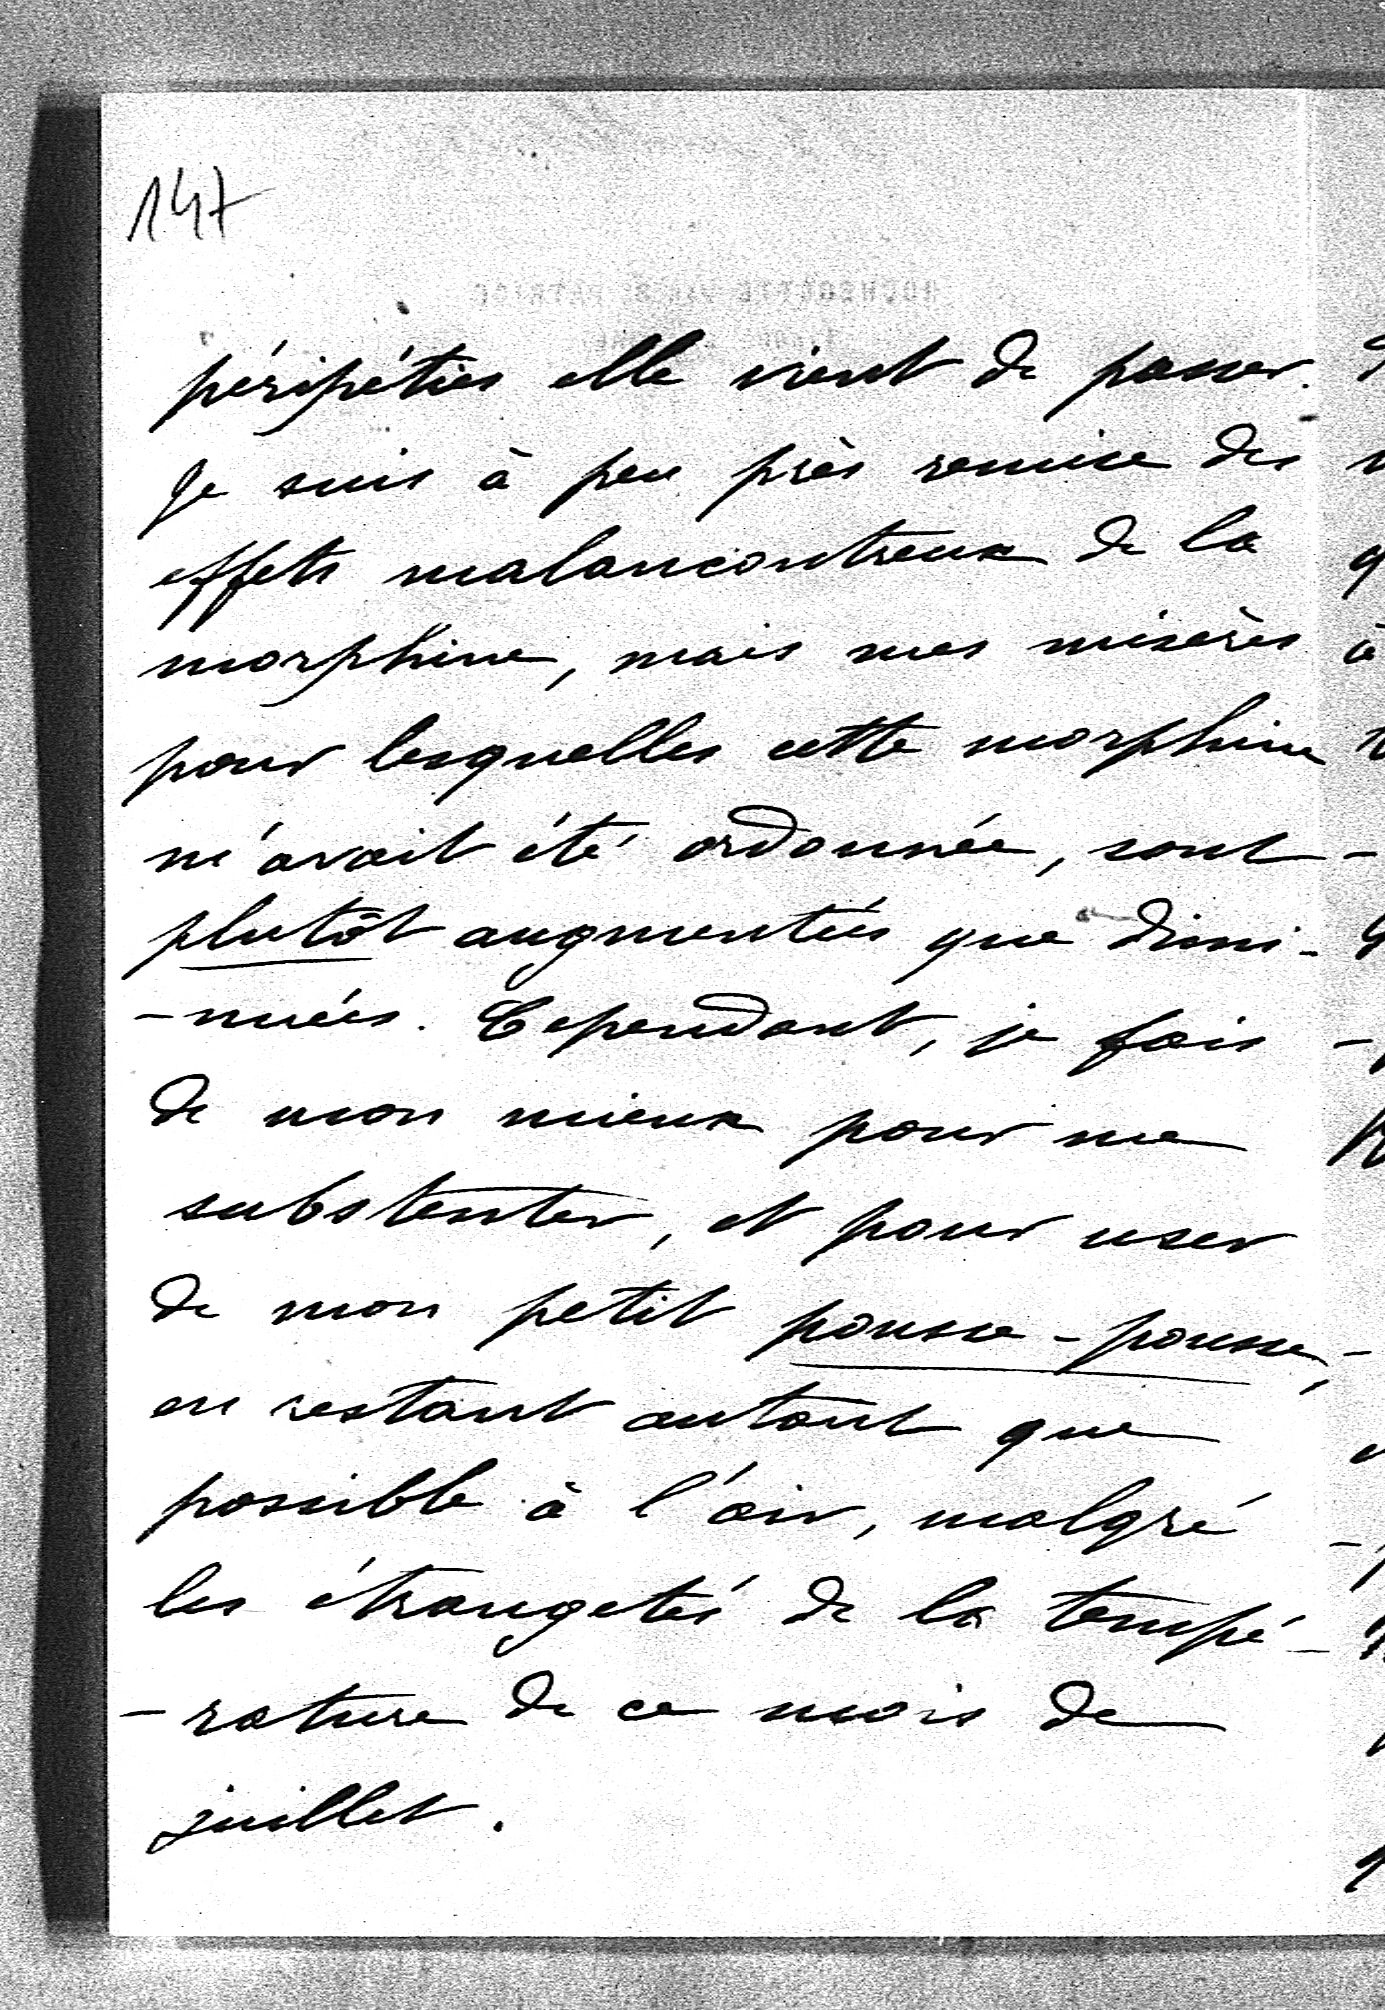 147
péripéties elle vient de passer.
Je suis à peu près remise des
effets malancontreux de la
morphine, mais mes misères
pour lesquelles cette morphine
m'avait été ordonnée, sont
plutôt augmentées que dimi-
-nuées. Cependant, je fais
de mon mieux pour me
substenter, et pour user
de mon petit pousse-pousse,
en restant autant que
possible à l'air, malgré
les étrangetés de la tempé-
-rature de ce mois de
juillet.